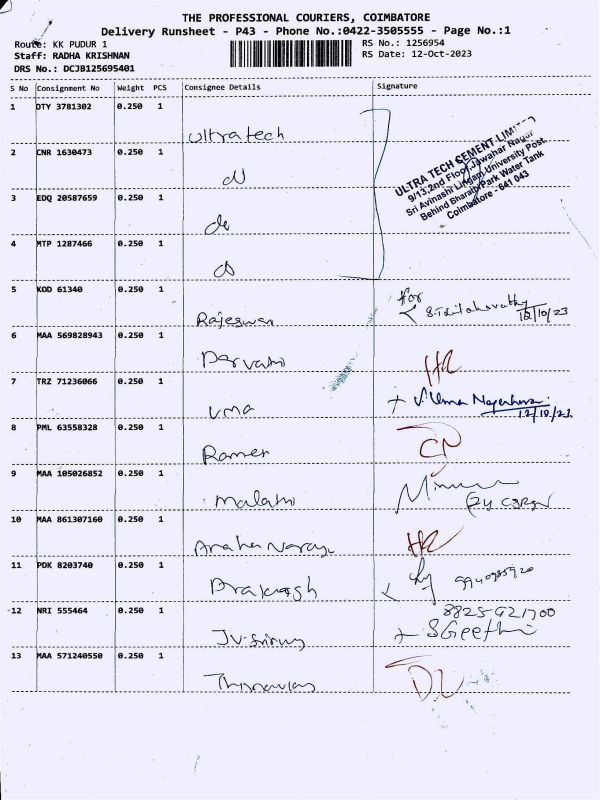 THE PROFESSIONAL COURIERS, COIMBATORE
Delivery Runsheet - P43 - Phone No.:0422-3505555 - Page No.:1
Route: KK PUDUR 1
RS No.: 1256954
Staff: RADHA KRISHNAN
RS Date: 12-Oct-2023
DRS No.: DCJB125695401
S No Consignment No Weight PCS Consignee Details Signature
1 DTY 3781302 0.250 1
Ultratech
ULTRA TECH CEMENT LIMITED
9/13,2nd Floor,Jawahar Nagar
Sri Avinashi Lingam University Post
Behind Bharathi Park Water Tank
Coimbatore - 641 043
2 CNR 1630473 0.250 1
3 EDQ 20587659 0.250 1
do
4 MTP 1287466 0.250 1
5 KOD 61340 0.250 1
Rajeswari
for
12/10/23
6 MAA 569828943 0.250 1
Parvathi
7 TRZ 71236066 0.250 1
Uma
12/10/23
8 PML 63558328 0.250 1
Ramesh
9 MAA 105026852 0.250 1
Malathi
10 MAA 861307160 0.250 1
11 PDK 8203740 0.250 1
Prakash
12 NRI 555464 0.250 1
8825-921700
SGeetha
13 MAA 571240550 0.250 1